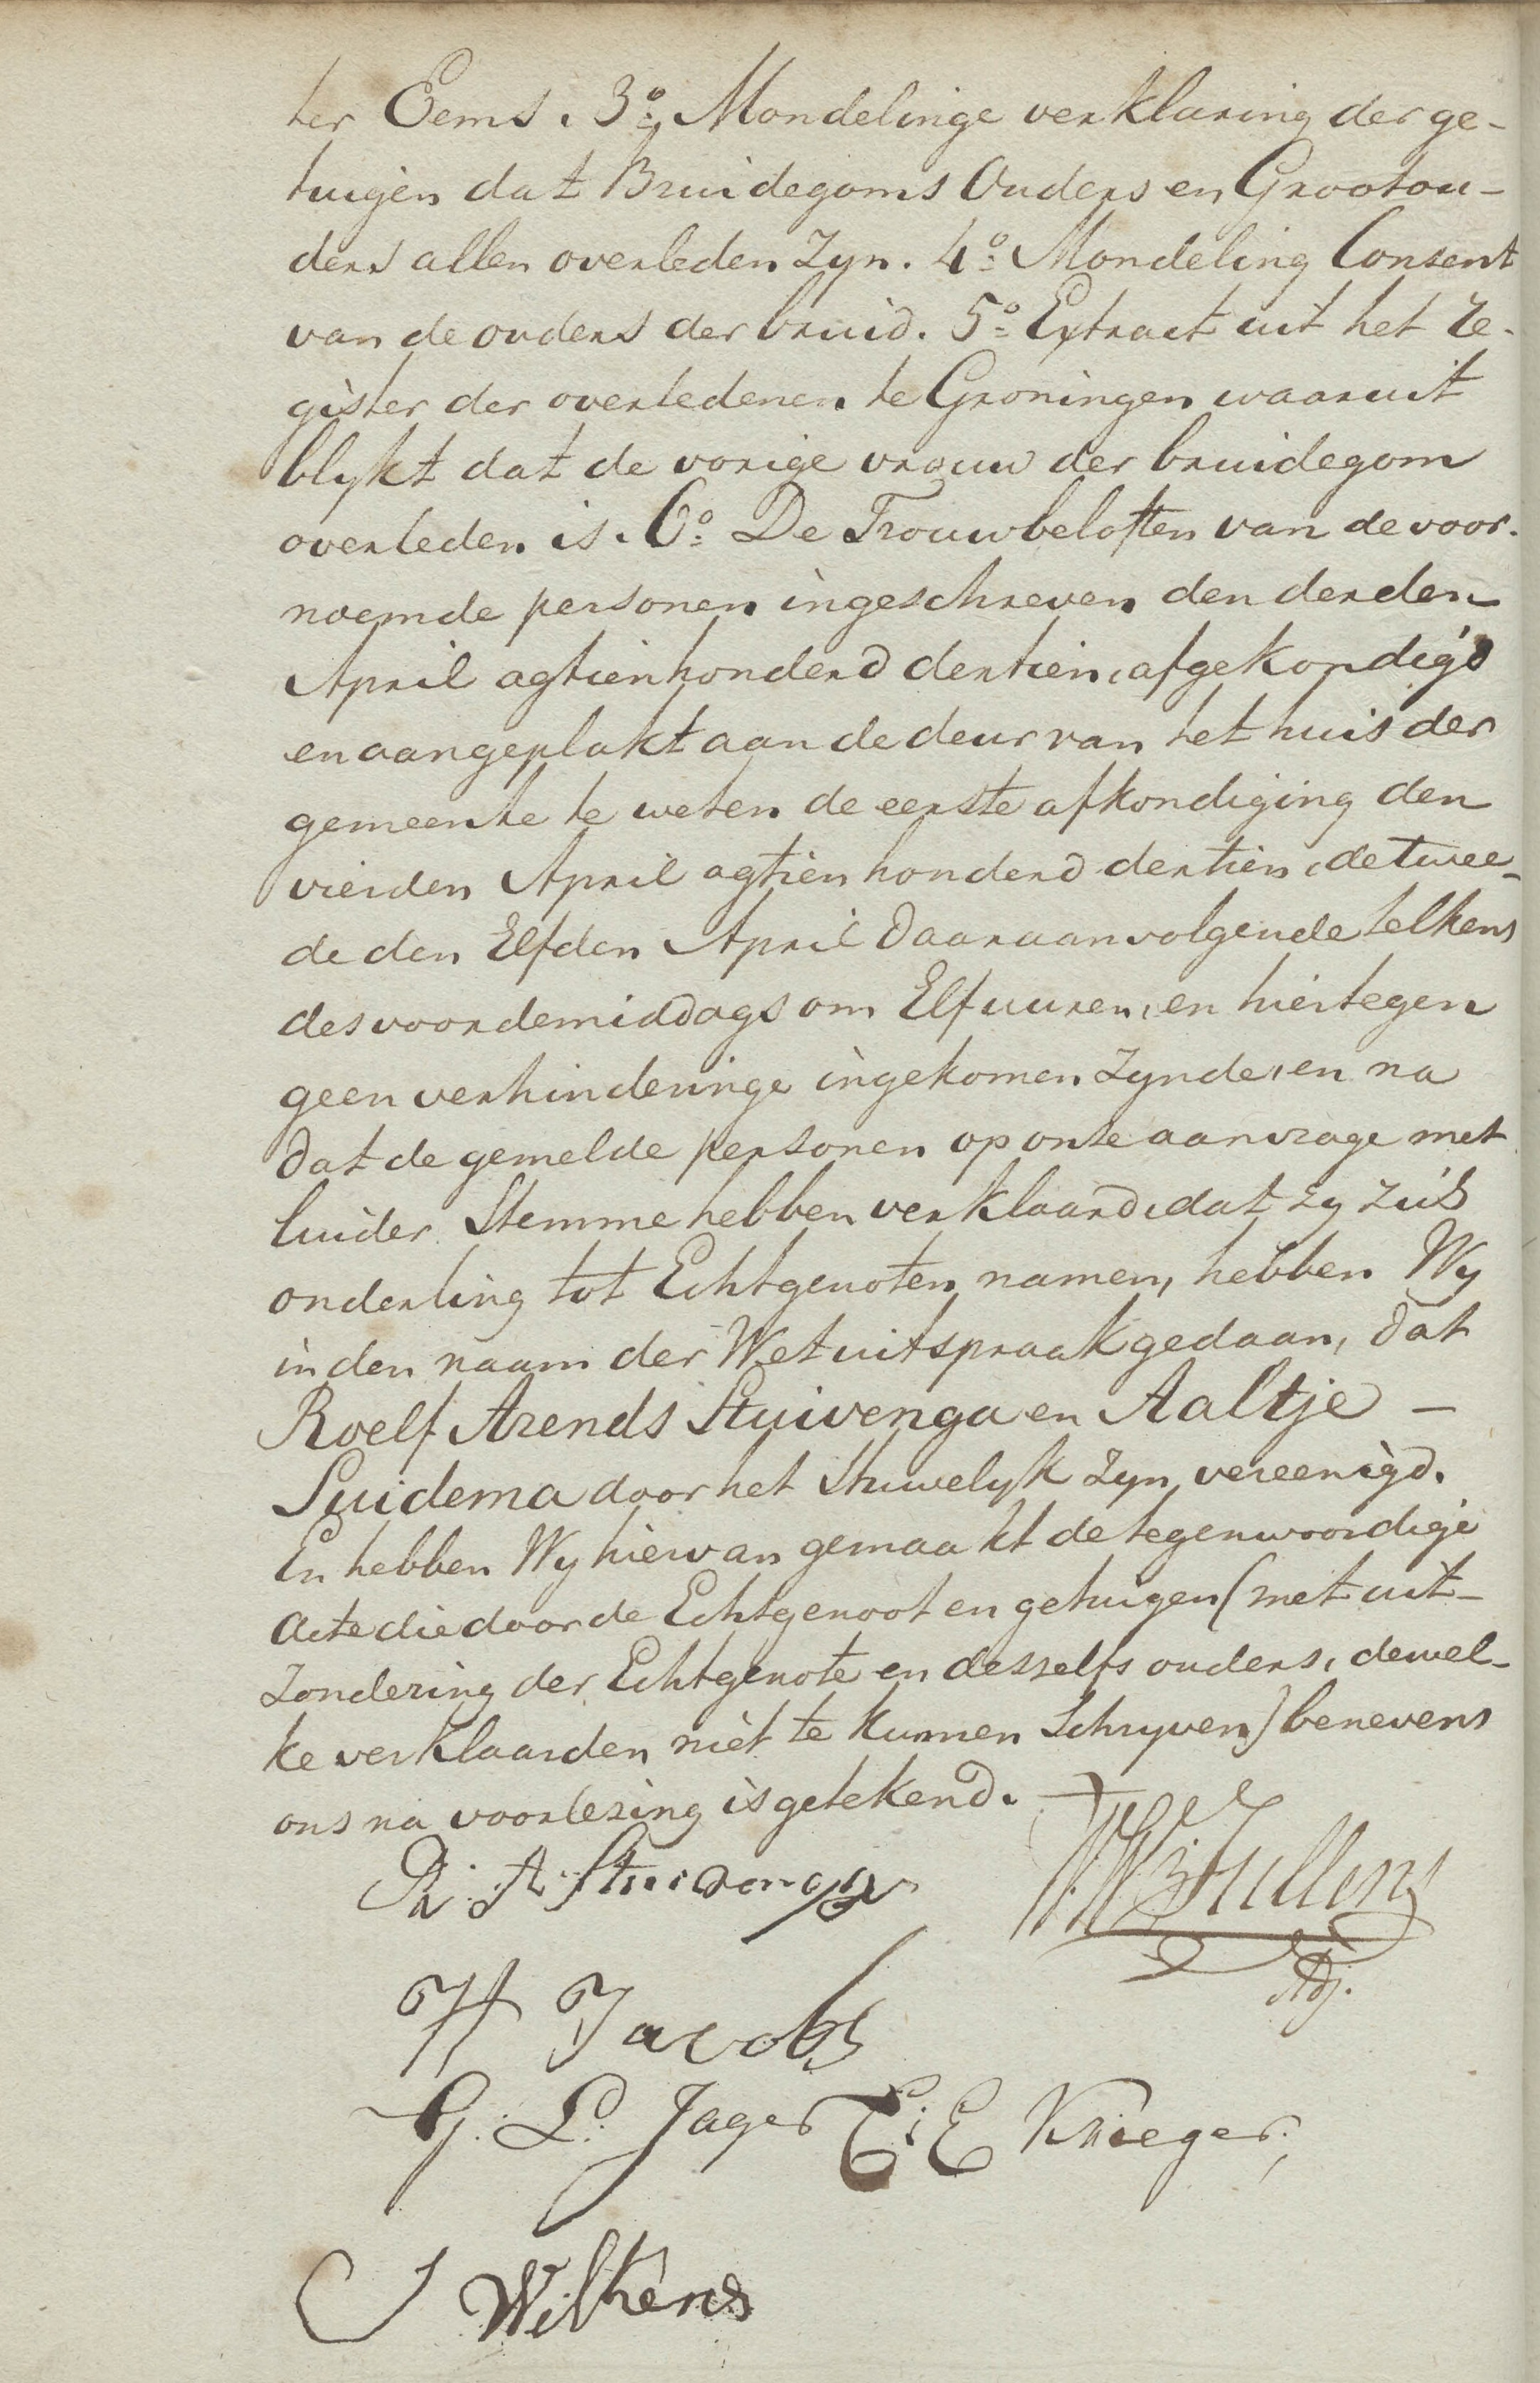 ter Eems. 3º Mondelinge verklaring der ge-
tuigen dat Bruidegoms Ouders en Grootou-
ders allen overleden Zyn. 4º Mondeling Consent
van de ouders der bruid. 5º Extract uit het Re-
gister der overledenen te Groningen waaruit
blykt dat de vorige vrouw der bruidegom
overleden is. 6º De Trouwbeloften van de voor-
noemde personen ingeschreven den derden
April agtienhonderd dertien, afgekondigd
en aangeplakt aan de deur van het huis der
gemeente te weten de eerste afkondiging den
vierden April agtienhonderd dertien, de twee-
de den Elfden April daaraanvolgende telkens
des voordemiddags om Elf uuren, en hiertegen
geen verhinderinge ingekomen Zynde, en na
dat de gemelde personen op onse aanvrage met
luider Stemme hebben verklaard, dat zy zich
onderling tot Echtgenoten namen, hebben Wy
in den naam der Wet uitspraak gedaan, dat
Roelf Arends Stuivenga en Aaltje –
Suidema door het Huwelyk Zyn vereenigd.
En hebben Wy hiervan gemaakt de tegenwoordige
Acte die door de Echtgenoot en getuigen (met uit-
Zondering der Echtgenote en desselfs ouders, dewel-
ke verklaarden niet te kunnen Schryven) benevens
ons na voorlezing is getekend.
R. A. Stuivenga
Tullens
Adj.
H Jacobs
G. L. Jager E. E Krieger.
J Wilkens